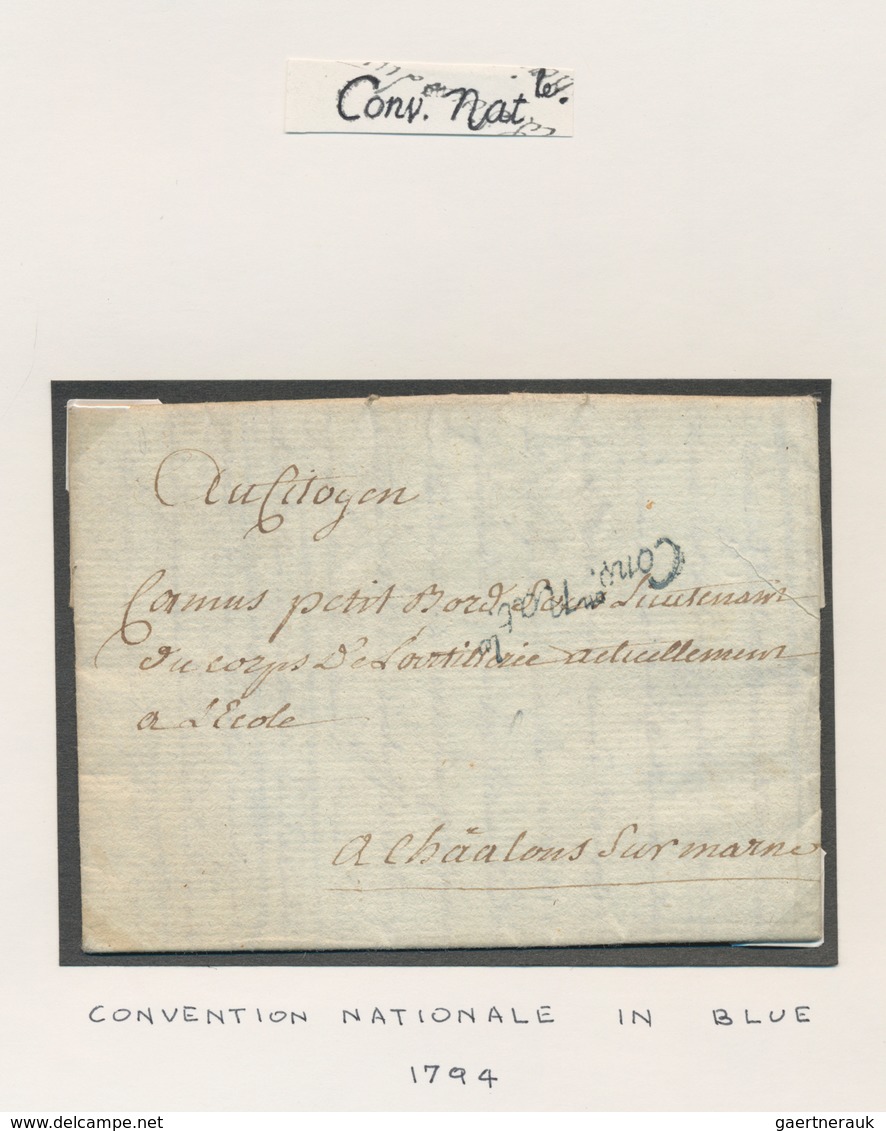 Conv.on Nat.le.
Au Citoyen
Conv.on Nat.le
Camus petit Bord Lieutenant
du corps De Lartillerie actuellement
a L'Ecole
A Chäalons Sur marne
CONVENTION NATIONALE IN BLUE
1794
www.delcampe.net
gaertnerauk